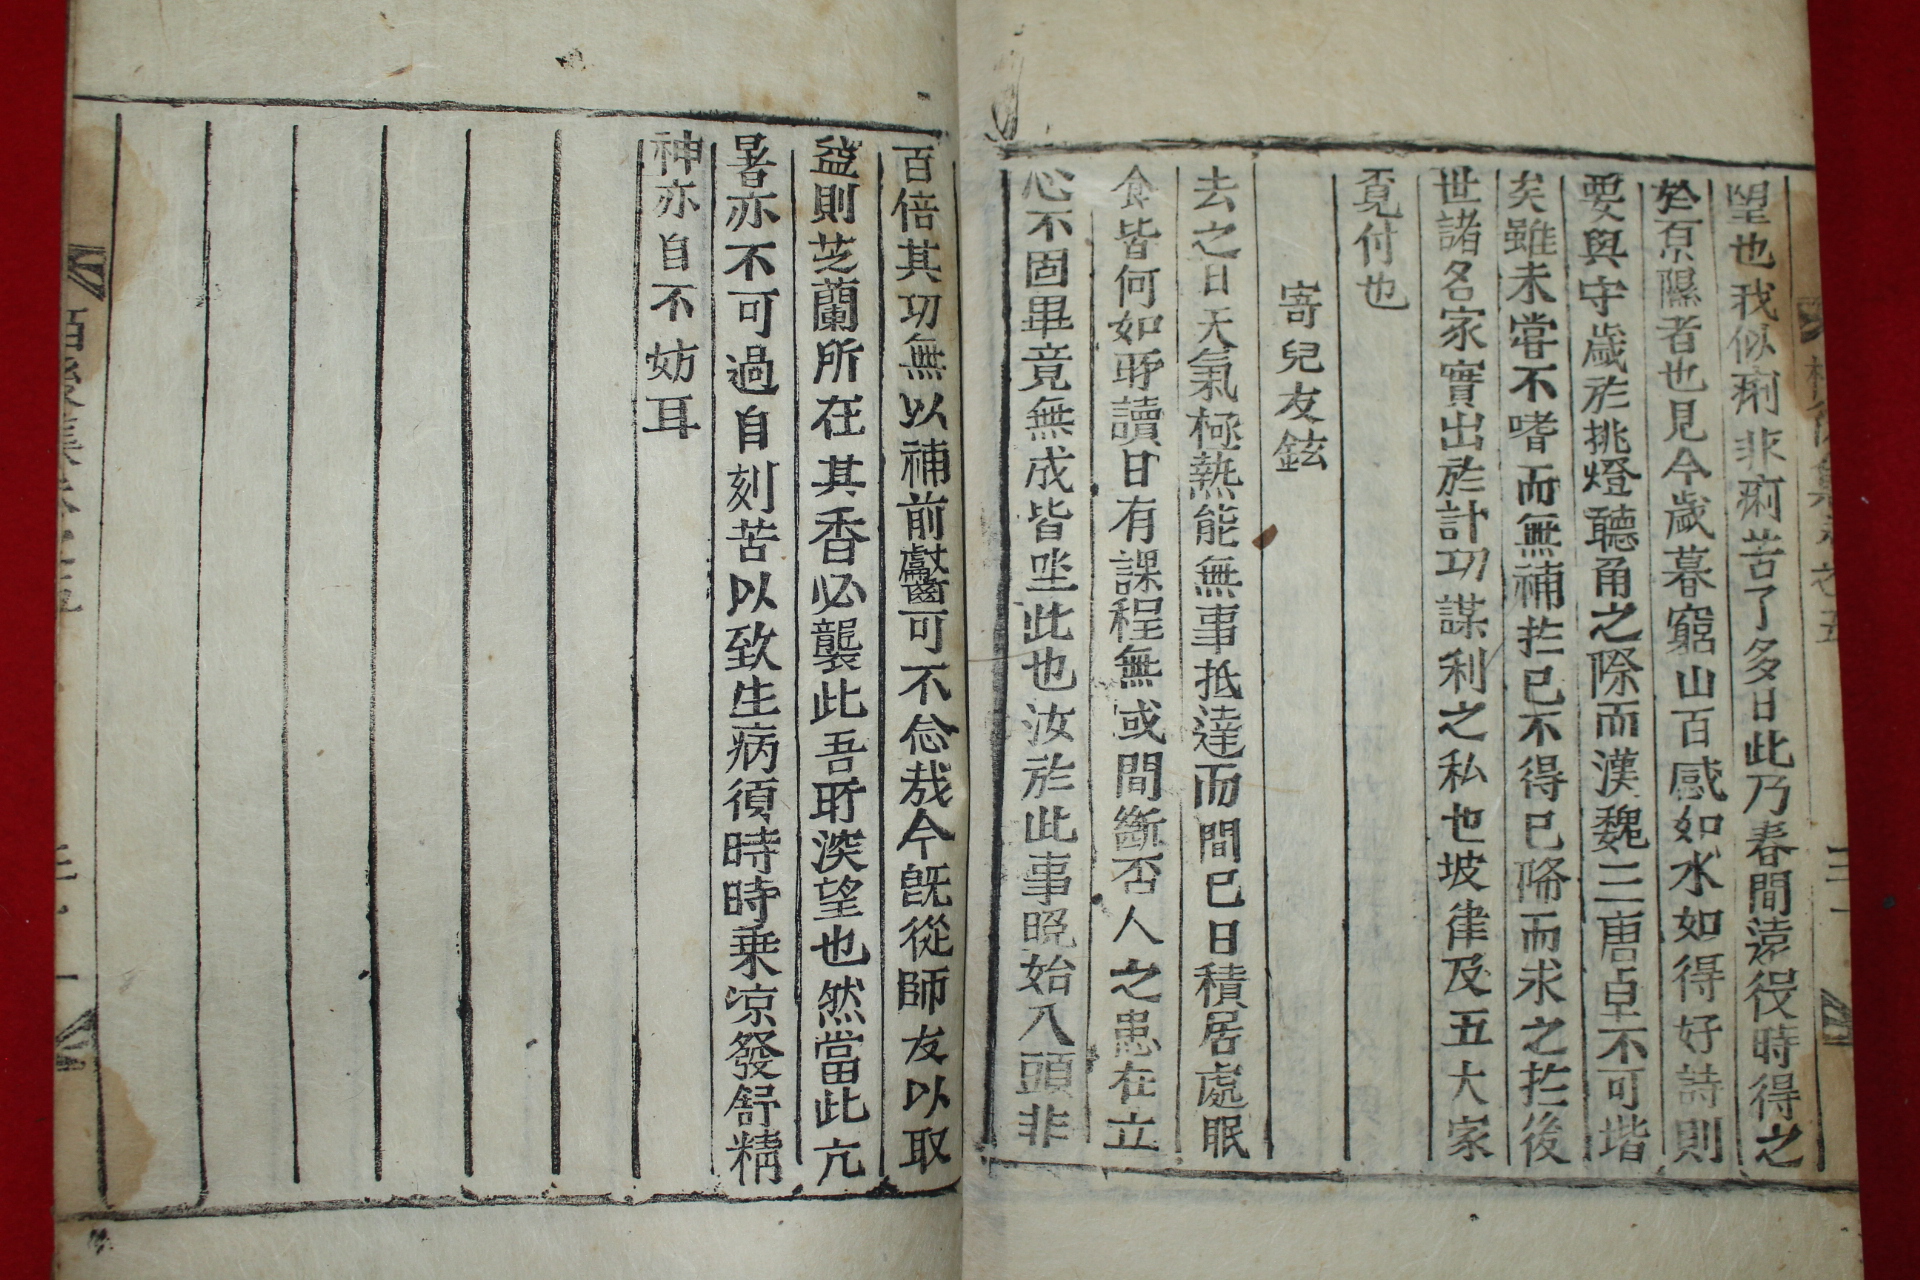 望也我似痢非痢苦了多日此乃春間遠役時得之
於原隰者也見今歲暮窮山百感如水如得好詩則
要與守歲於挑燈聽角之際而漢魏三唐卓不可堦
矣雖未嘗不嗜而無補於已不得已降而求之於後
世諸名家實出於計功謀利之私也坡律及五大家
覓付也
寄兒友鉉
去之日天氣極熱能無事抵達而間已日積居處眠
食皆何如所讀日有課程無或間斷否人之患在立
心不固畢竟無成皆坐此也汝於此事晩始入頭非
百倍其功無以補前可不念哉今旣從師友以取
益則芝蘭所在其香必襲此吾所深望也然當此亢
暑亦不可過自刻苦以致生病須時時乘凉發舒精
神亦自不妨耳